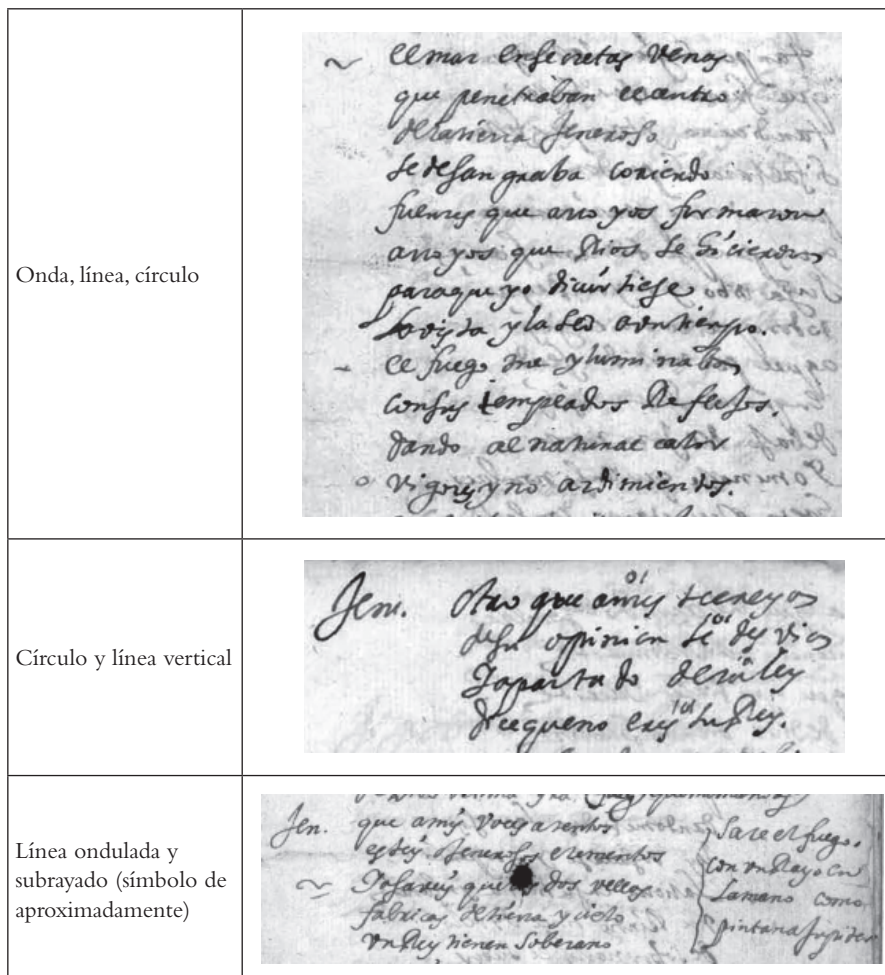 Onda, línea, círculo
~ el mar en secretas venas
que penetraban el centro
de la tierra Jeneroso
se desangraba coriendo
fuentes que arroyos formaron
arroyos que Rios se hicieron
para que yo divirtiese
la vista y la sed a un tiempo.
- el fuego me yluminaba
con sus templados Reflejos.
dando al natural calor
o vigores y no ardimientos.
Círculo y línea vertical
Jen. otro que a mis
de su opinion se desvia
y apartado de la ley
dice que no eres su Rey.
Línea ondulada y
subrayado (símbolo de
aproximadamente)
Jen. que a mis voces atentos
esteis Jenerosos elementos
Ya sabeis que dos bellas
fabricas de tierra y cielo
un Rey tienen Soberano
Sale el fuego.
con un Rayo en
la mano como
pintan a Jupiter